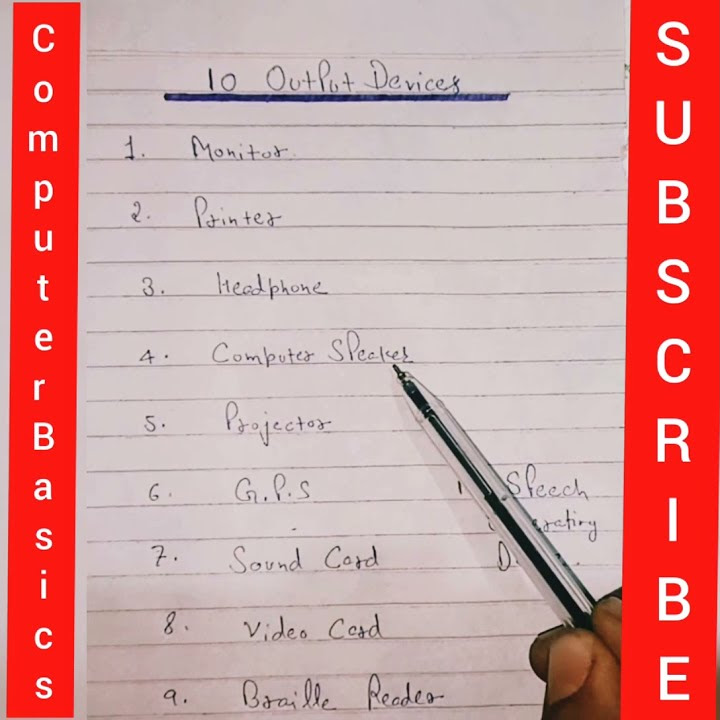 ComputerBasics
SUBSCRIBE
10 Output Devices
1. Monitor.
2. Printer
3. Headphone
4. Computer Speaker
5. Projector
6. G.P.S
Speech
7. Sound Card
8. Video Card
9. Braille Reader